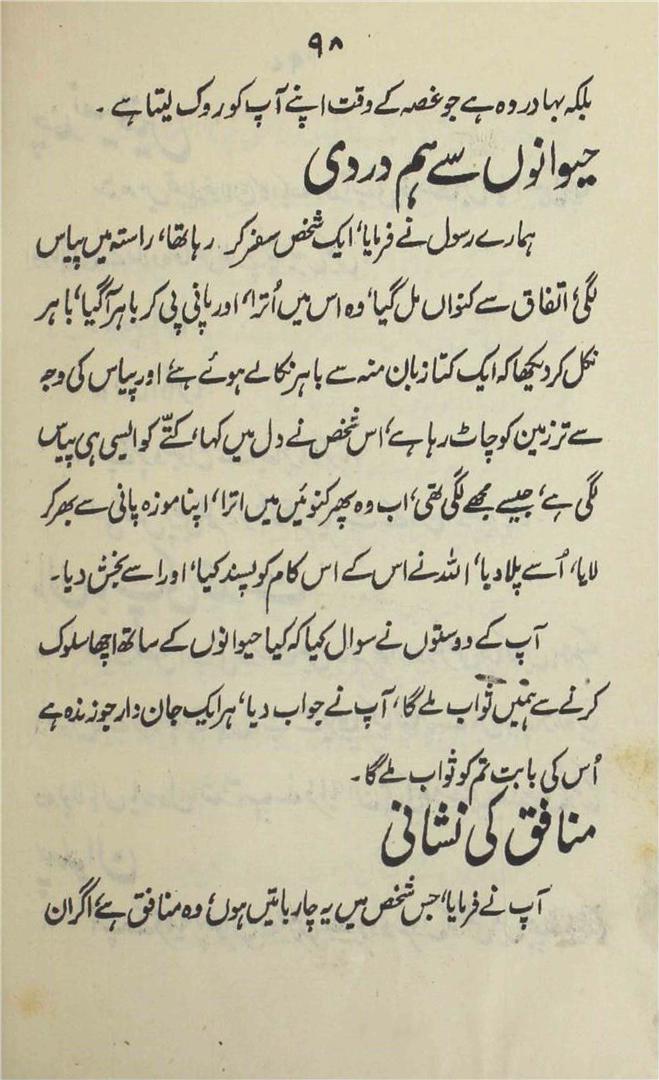 ۹۸
بلکہ بہادر وہ ہے جو غصہ کے وقت اپنے آپ کو روک لیتا ہے ۔
حیوانوں سے ہم دردی
ہمارے رسول نے فرمایا، ایک شخص سفر کر رہا تھا، راستہ میں پیاس
لگی، اتفاق سے کنواں مل گیا، وہ اس میں اُترا، اور پانی پی کر باہر آگیا، باہر
نکل کر دیکھا کہ ایک کتا زبان منہ سے باہر نکالے ہوئے ہے، اور پیاس کی وجہ
سے تر زمین کو چاٹ رہا ہے، اس شخص نے دل میں کہا، کتّے کو ایسی ہی پیاس
لگی ہے، جیسے مجھے لگی تھی، اب وہ پھر کنوئیں میں اترا، اپنا موزہ پانی سے بھر کر
لایا، اُسے پلا دیا، اللہ نے اس کے اس کام کو پسند کیا، اور اسے بخش دیا۔
آپ کے دوستوں نے سوال کیا کہ کیا حیوانوں کے ساتھ اچھا سلوک
کرنے سے ہمیں ثواب ملے گا، آپ نے جواب دیا، ہر ایک جان دار جو زندہ ہے
اُس کی بابت تم کو ثواب ملے گا۔
منافق کی نشانی
آپ نے فرمایا، جس شخص میں یہ چار باتیں ہوں، وہ منافق ہے، اگر ان